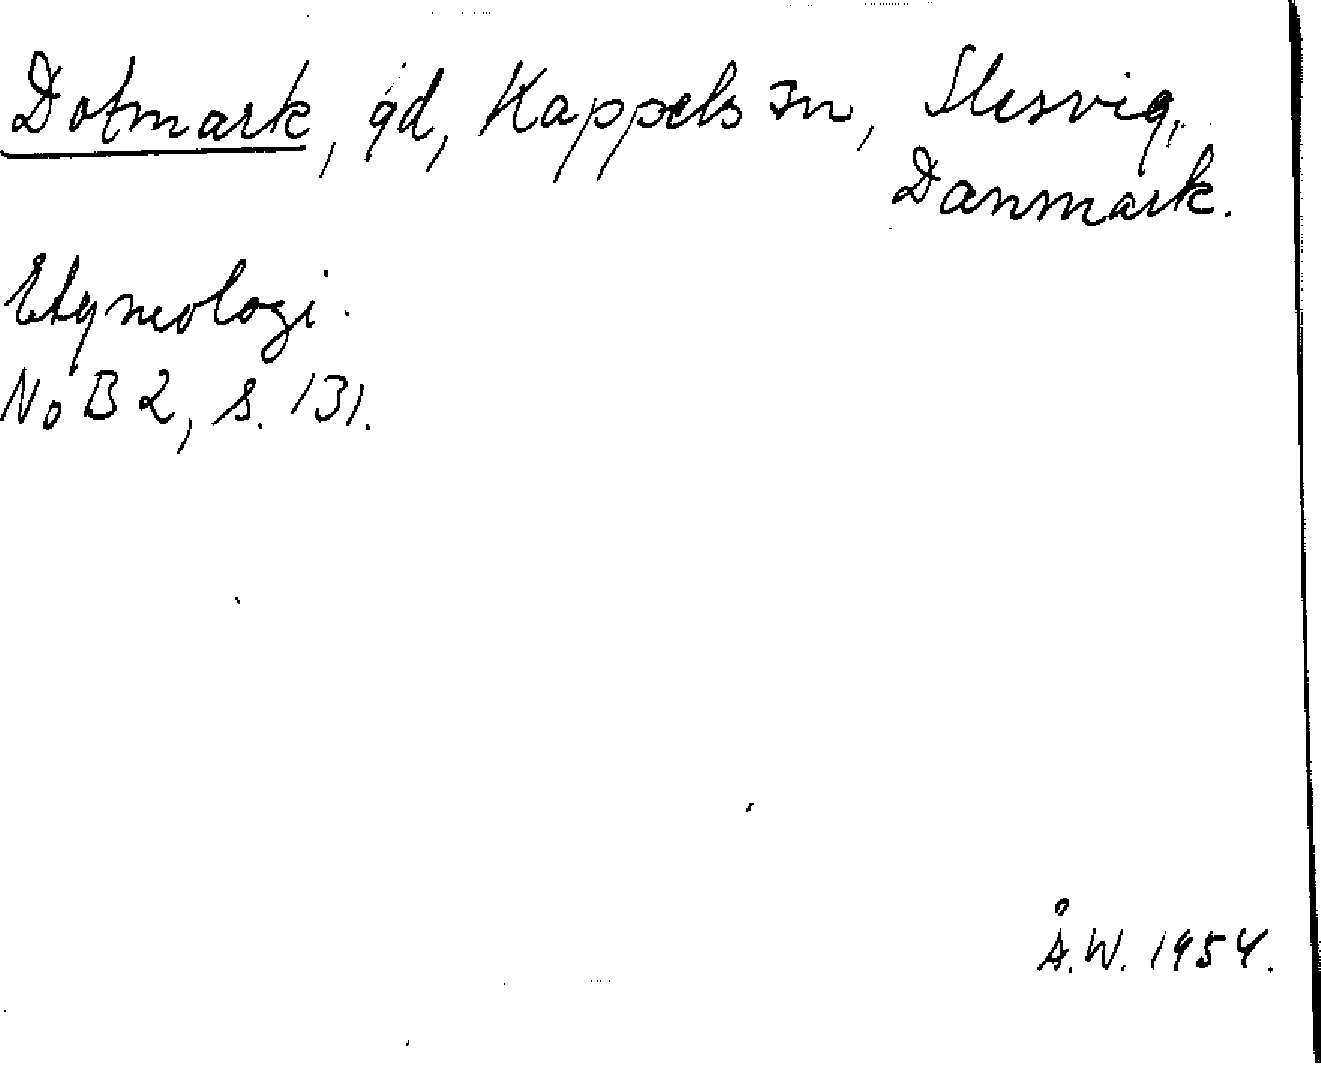 Dotmark, gd, Kappels sn, Slesvig,
Danmark.
Etymologi.
NoB 2, s. 131.
Å.W. 1954.